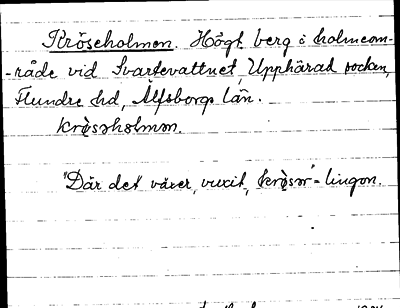 Kröseholmen. Högt berg i holmeom-
-råde vid Svartevattnet, Upphärad socken,
Flundre hd, Älfsborgs län.
krø̀səhɷlmən.
"Där det växer, vuxit, krø̀sər"- lingon.